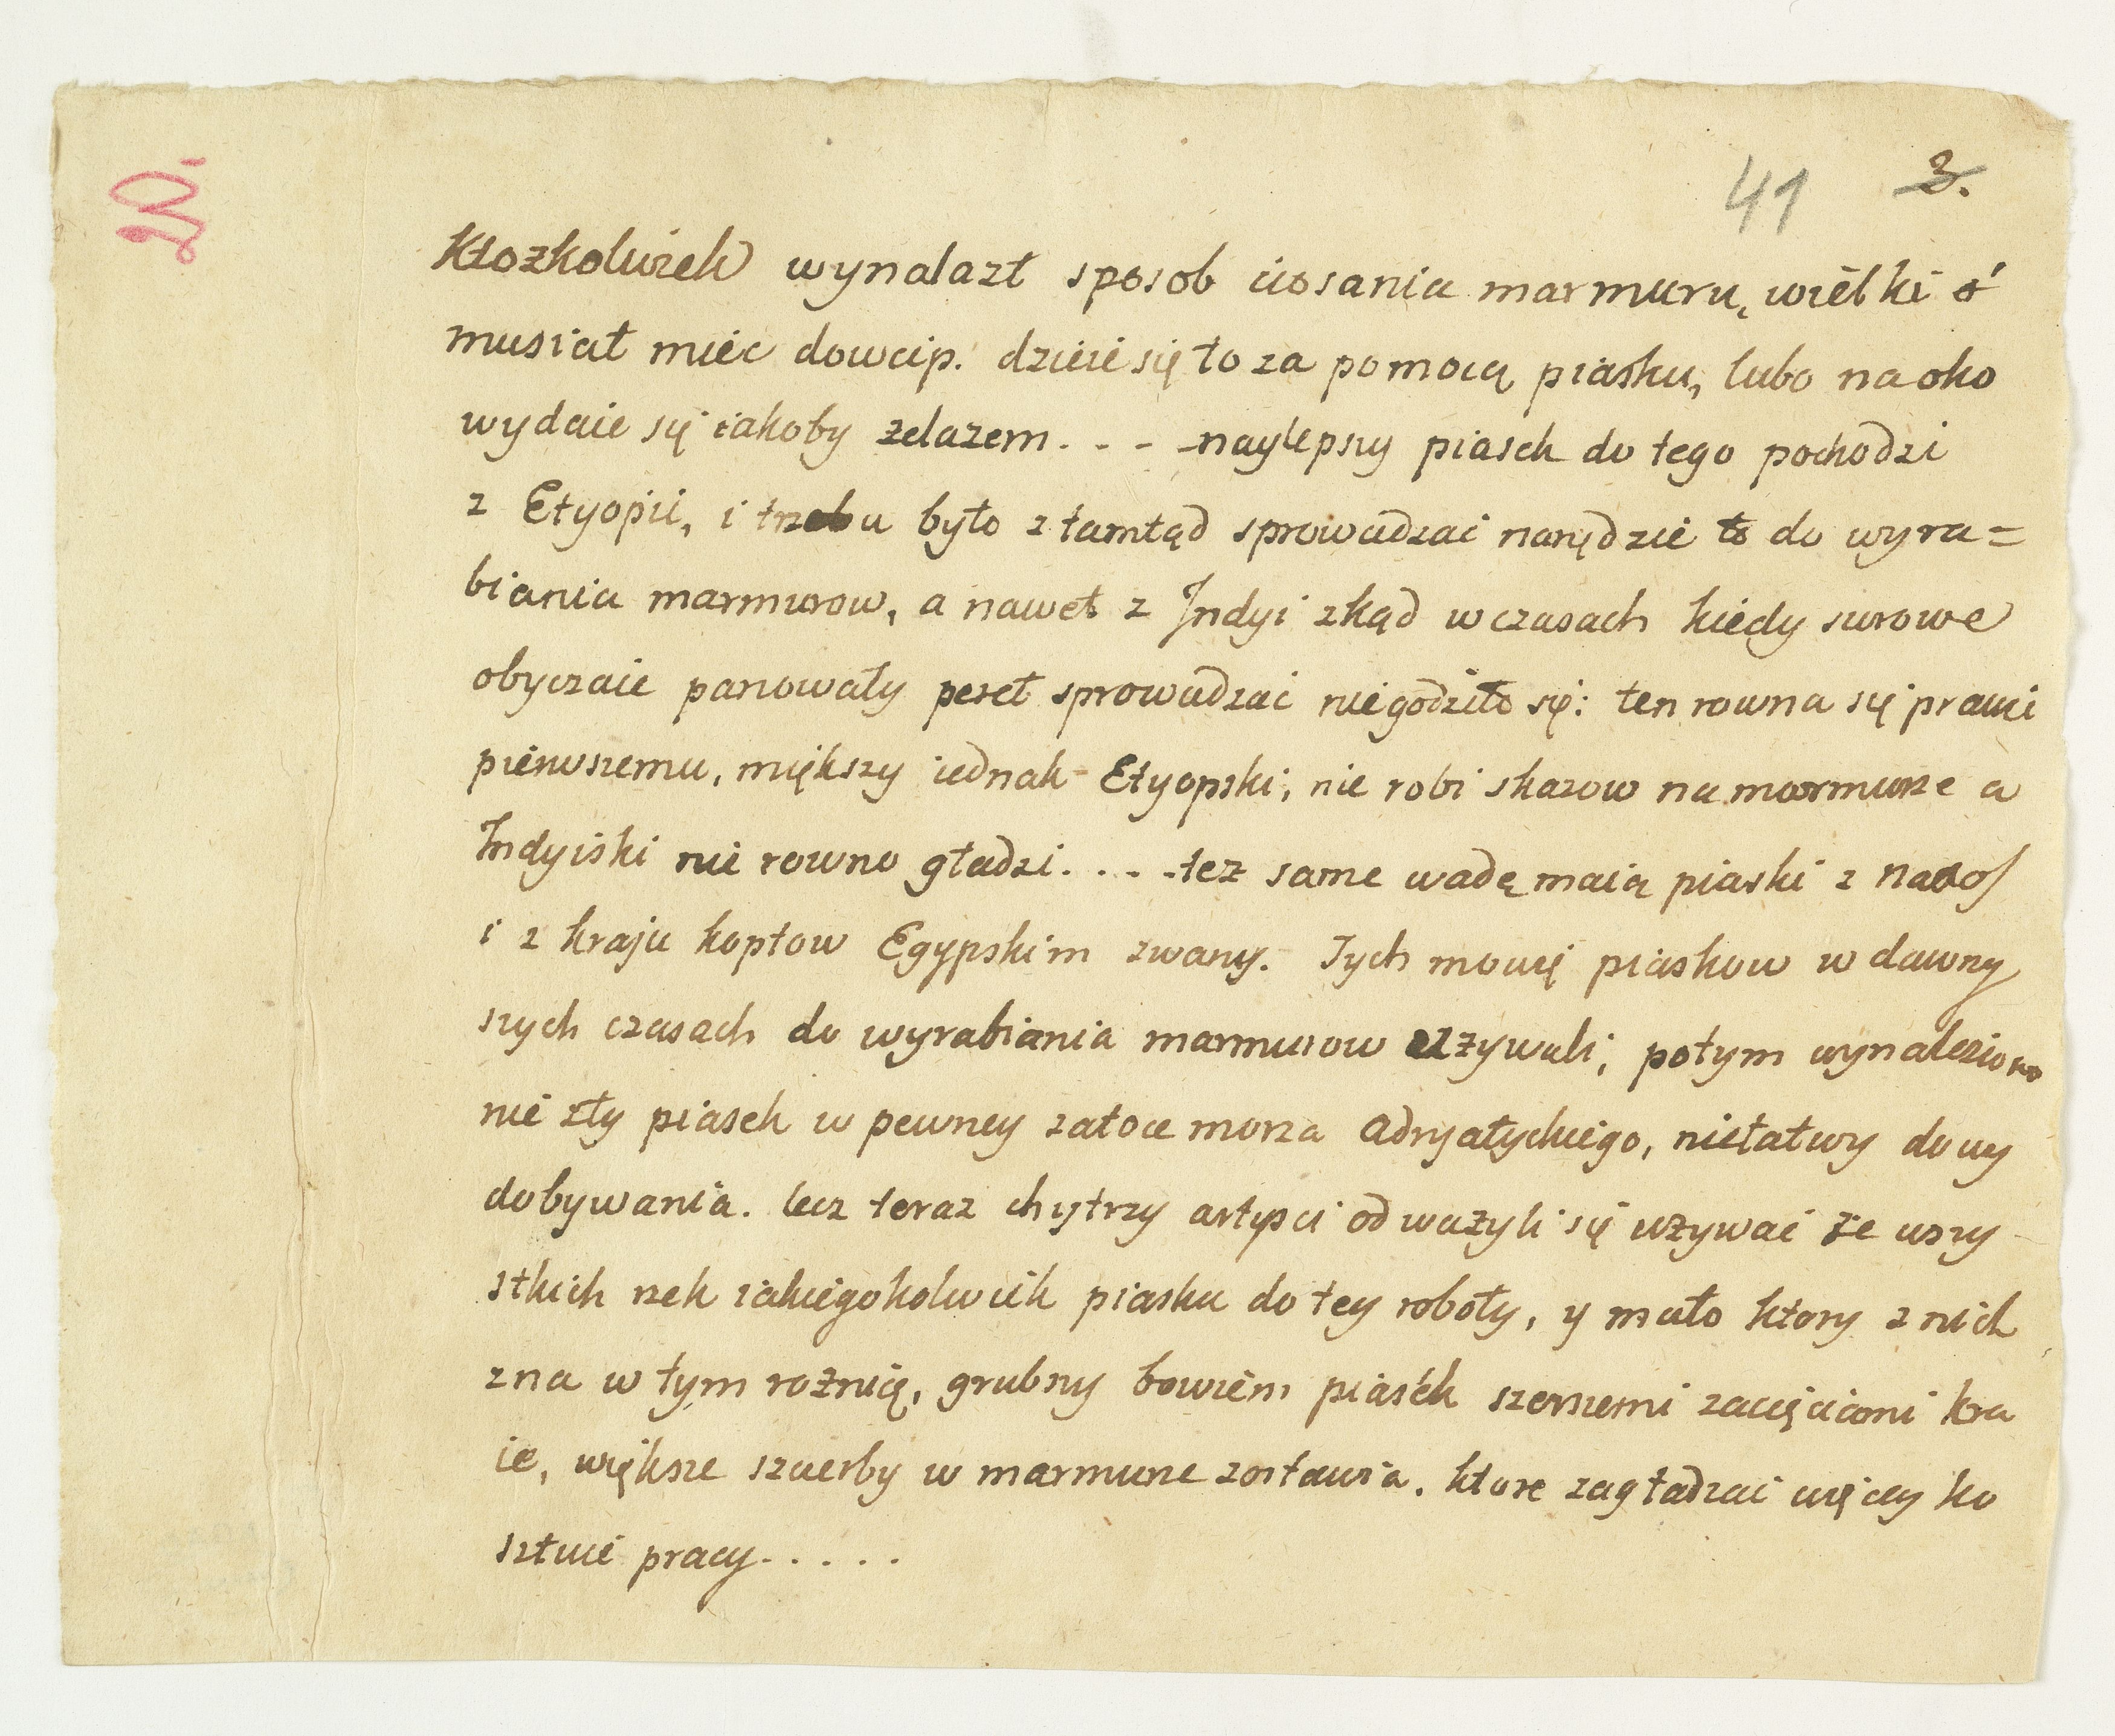 41 3.
Ktozkolwiek wynalazł sposob ciosania marmuru, wielki
musiał miec dowcip. dzieie się to za pomocą piasku, lubo na oko
wydaie się iakoby zelazem. - - - naylepszy piasek do tego pochodzi
z Etyopii, i trzeba było ztamtąd sprowadzać narzędzie to do wyra=
biania marmurow, a nawet z Indyi zkąd w czasach kiedy surowe
obyczaie panowały pereł sprowadzać niegodziło się: ten rowna się prawie
pierwszemu, miększy iednak Etyopski, nie robi skazow na marmurze a
Indyiski nie rowno gładzi. . . . też same wadę maią piaski z Naxos
i z kraju koptow Egypskim zwany. Tych mowię piaskow w dawny
szych czasach do wyrabiania marmurow używali, potym wynaleziono
nie zły piasek w pewney zatoce morza Adryatyckiego, niełatwy do wy
dobywania. lecz teraz chytrzy artysci odważyli się używać ze wszy
stkich rzek iakiegokolwiek piasku do tey roboty, y mało ktory z nich
zna w tym rożnicę, grubszy bowiem piasek szerszemi zacięciami kra
ie, większe szczerby w marmurze zostawia. ktore zagładzać więcey ko
sztuie pracy. . . . .